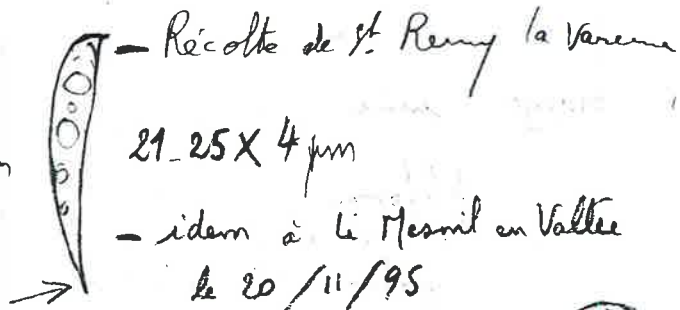 - Récolte de St Remy la Varenne
21-25 X 4 µm
- idem à Le Mesnil en Vallée
le 20/11/95